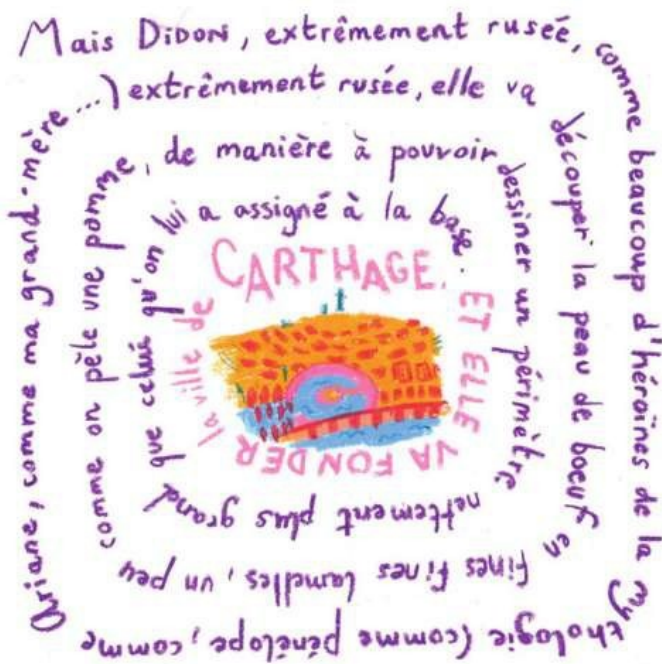 Mais DIDON, extrêmement rusée,
comme beaucoup d'héroïnes de la
mythologie (comme pénélope, comme
Ariane, comme ma grand-mère
...) extrêmement rusée, elle va
découper la peau de boeuf en
fines fines lamelles, un peu
comme on pèle une pomme,
de manière à pouvoir
dessiner un périmètre
nettement plus grand
que celui qu'on lui
a assigné à la base.
ET ELLE
VA FONDER
la ville de
CARTHAGE.